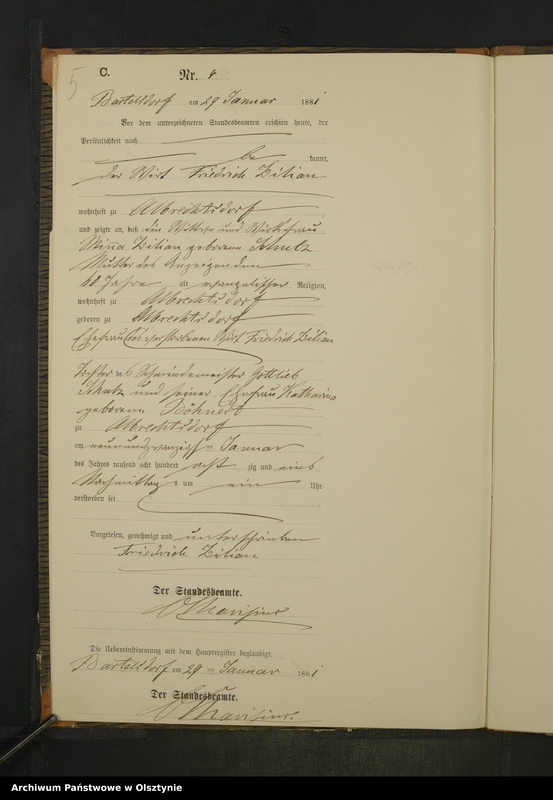 5
C.
Nr. 4
Bartelsdorf am 29 Januar 1881
Vor dem unterzeichneten Standesbeamten erschien heute, der
Persönlichkeit nach
be kannt,
der Wirt Friedrich Zilian
wohnhaft zu Albrechtsdorf
und zeigte an, daß die Wittwe und Wirthsfrau
Mina Zilian geborene Schulz
Mutter des Anzeigenden
60 Jahre alt evangelischer Religion,
wohnhaft zu Albrechtsdorf
geboren zu Albrechtsdorf
Ehefrau des verstorbenen Wirt Friedrich Zilian
Tochter des Gottlieb
Schulz und seiner Ehefrau Katharina
geborene Böhnert
zu Albrechtsdorf
am neunundzwanzigsten Januar
des Jahres tausend acht hundert acht zig und eins
Nachmittags um ein Uhr
verstorben sei
Vorgelesen, genehmigt und unterschrieben
Friedrich Zilian
Der Standesbeamte.
Die Uebereinstimmung mit dem Hauptregister beglaubigt.
Bartelsdorf am 29 ten Januar 1881
Der Standesbeamte.
Archiwum Państwowe w Olsztynie